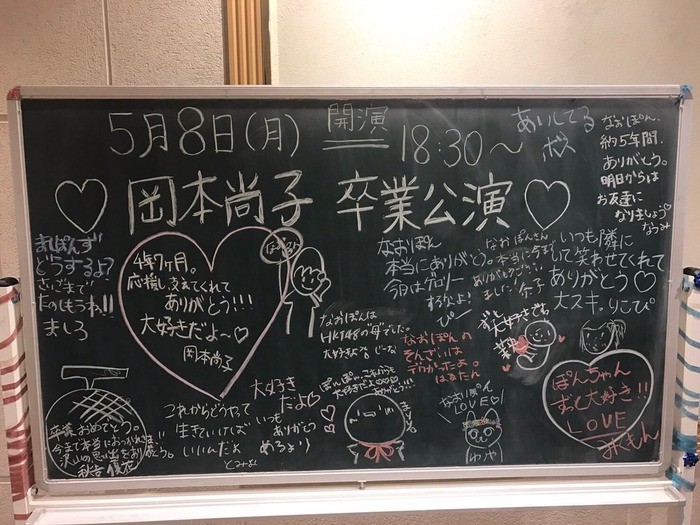 5月8日(月)
開演
18:30〜
♡岡本尚子 卒業公演♡
あいしてる
なおぽん、
約5年間、
ありがとう。
明日からは
お友達に
なりましょう♡
なつみ
まねぽんず
どうするよ?
さいごまで
たのしもうね!!
ましろ
4年7ヶ月。
応援し支えてくれて
ありがとう!!!
大好きだよ〜♡
岡本尚子
なおぽん
本当にありがとう。
今日は
するかよ!
ぴー
なおぽんさん
本当に今まで
ありがとうござい
ました!
いつも隣に
いて笑わせてくれて
ありがとう♡
大スキ。りこぴ
なおぽんは
HKT48の母でした。
大好きよ
なおぽんの
そんざいは
デカかったよ。
はるたん
ずっと
大好きです
卒業おめでとう。
今まで本当におつかれさま!!
沢山の思い出をありがとう。
秋吉優花
これからどうやって
生きていけば
いいんだよ
とみよし
大好き
だよ♡
いつも
ありがとう
めるより
ぽんぽん、これからも
大好きだよ
ありがとう!
なおぽん
LOVE♡
ぽんちゃん
ずっと大好き!!
LOVE
みくもん